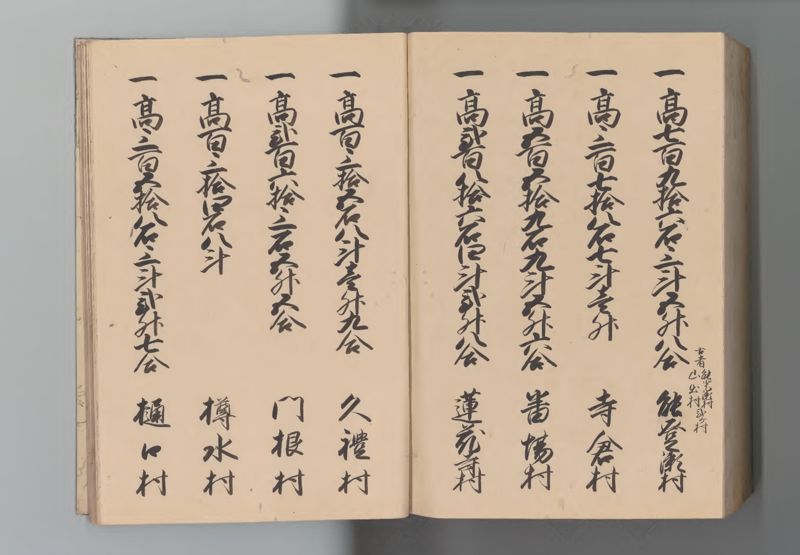 一高七百九拾六石三斗五升八合 能登瀬村
古者能登瀬村
山出村 弐ヶ村
一高三百七拾八石七斗壱升 寺倉村
一高五百五拾九石九斗五升六合 番場村
一高弐百八拾六石四斗弐升八合 蓮花寺村
一高百三拾五石八斗壱升九合 久禮村
一高弐百六拾三石五升五合 門根村
一高百三拾四石八斗 樽水村
一高三百五拾八石三斗弐升七合 樋口村